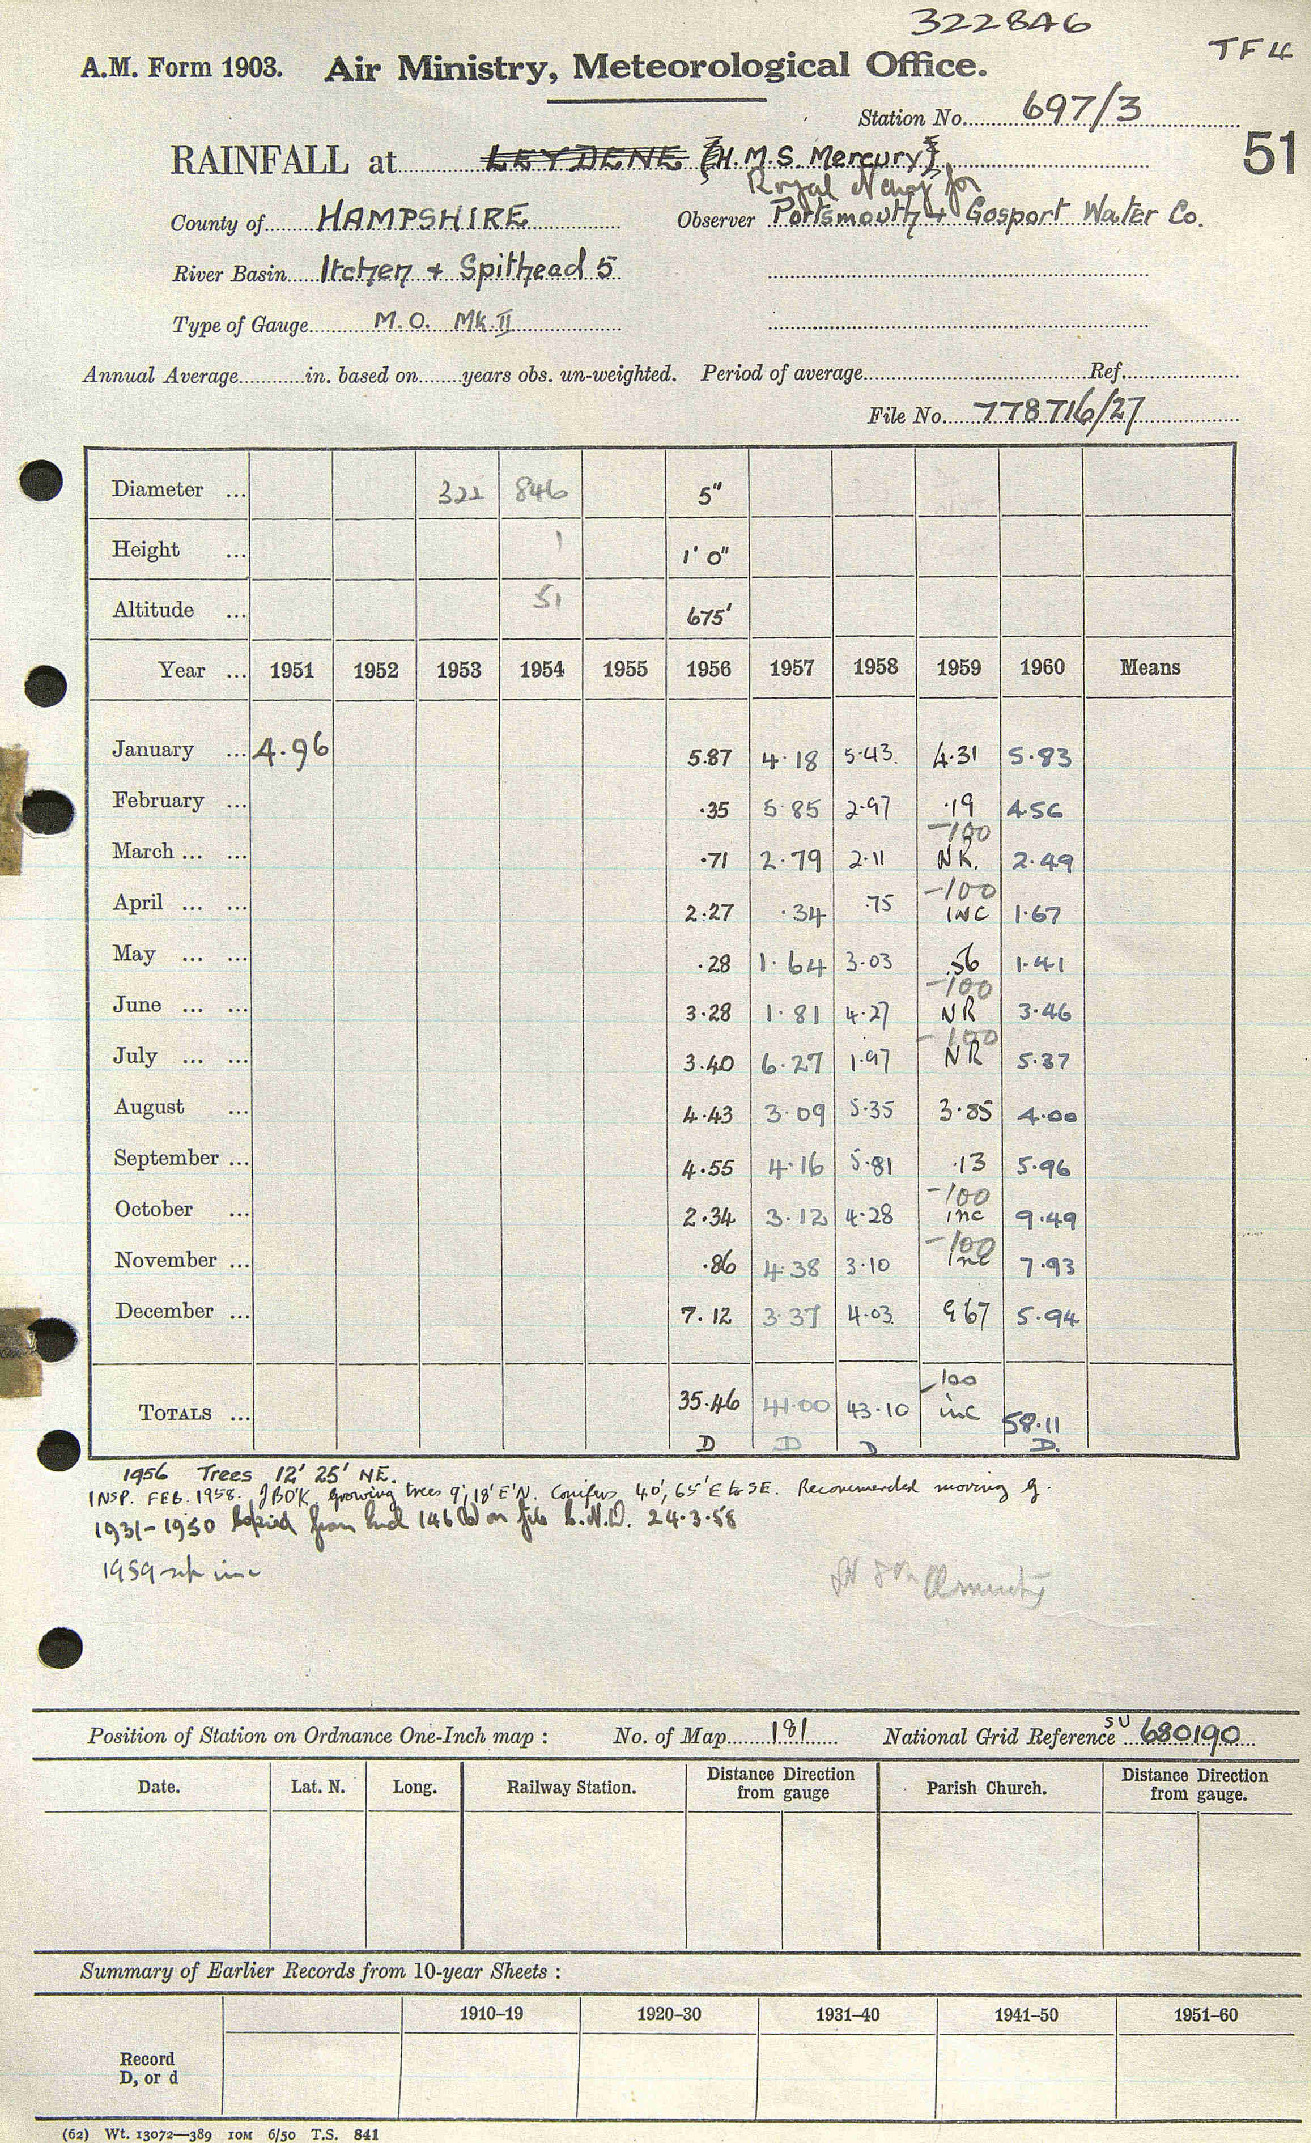 322846
TF4
A.M. Form 1903. Air Ministry, Meteorological Office.
Station No. 697/3
51
RAINFALL at LEYDENE [H.M.S. Mercury]
Royal Navy for
County of HAMPSHIRE Observer Portsmouth + Gosport Water Co.
River Basin Itchen + Spithead 5
Type of Gauge M.O. Mk II
Annual Average in. based on years obs. un-weighted. Period of average Ref.
File No. 778716/27
Diameter ... 322 846 5"
Height ... 1 1' 0"
Altitude ... 51 675'
Year ... 1951 1952 1953 1954 1955 1956 1957 1958 1959 1960 Means
January ... 4.96 5.87 4.18 5.43 4.31 5.83
February ... .35 5.85 2.97 .19 4.56
-100
March ... ... .71 2.79 2.11 NR. 2.49
-100
April ... ... 2.27 .34 .75 INC 1.67
May ... ... .28 1.64 3.03 .56 1.41
-100
June ... ... 3.28 1.81 4.27 NR 3.46
-100
July ... ... 3.40 6.27 1.97 NR 5.37
August ... 4.43 3.09 5.35 3.85 4.00
September ... 4.55 4.16 5.81 .13 5.96
-100
October ... 2.34 3.12 4.28 inc 9.49
-100
November ... .86 4.38 3.10 Inc 7.93
December ... 7.12 3.37 4.03 9.67 5.94
-100
TOTALS ... 35.46 41.00 43.10 inc 58.11
D D D D.
1956 Trees 12' 25' NE.
INSP. FEB. 1958. JBO'K growing trees 9', 18' E'N. Conifers 40', 65' E to SE. Recommended moving g.
1931-1950 copied from on file 24.3.58
1959 inc
Position of Station on Ordnance One-Inch map : No. of Map 181 National Grid Reference SU 680190
Date. Lat. N. Long. Railway Station. Distance Direction from gauge Parish Church. Distance Direction from gauge.
Summary of Earlier Records from 10-year Sheets :
1910–19 1920–30 1931–40 1941–50 1951–60
Record
D, or d
(62) Wt. 13072—389 10M 6/50 T.S. 841